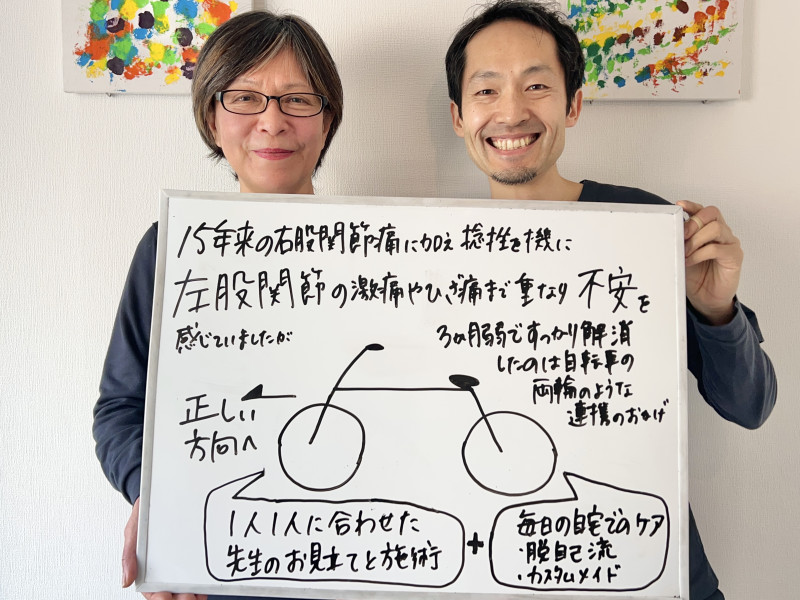 15年来の右股関節痛に加え捻挫を機に
左股関節の激痛やひざ痛まで重なり不安を
感じていましたが
3ヵ月弱ですっかり解消
したのは自転車の
両輪のような
連携のおかげ
正しい
方向へ
1人1人に合わせた
先生のお見立てと施術
+
毎日の自宅でのケア
・脱自己流
・カスタムメイド